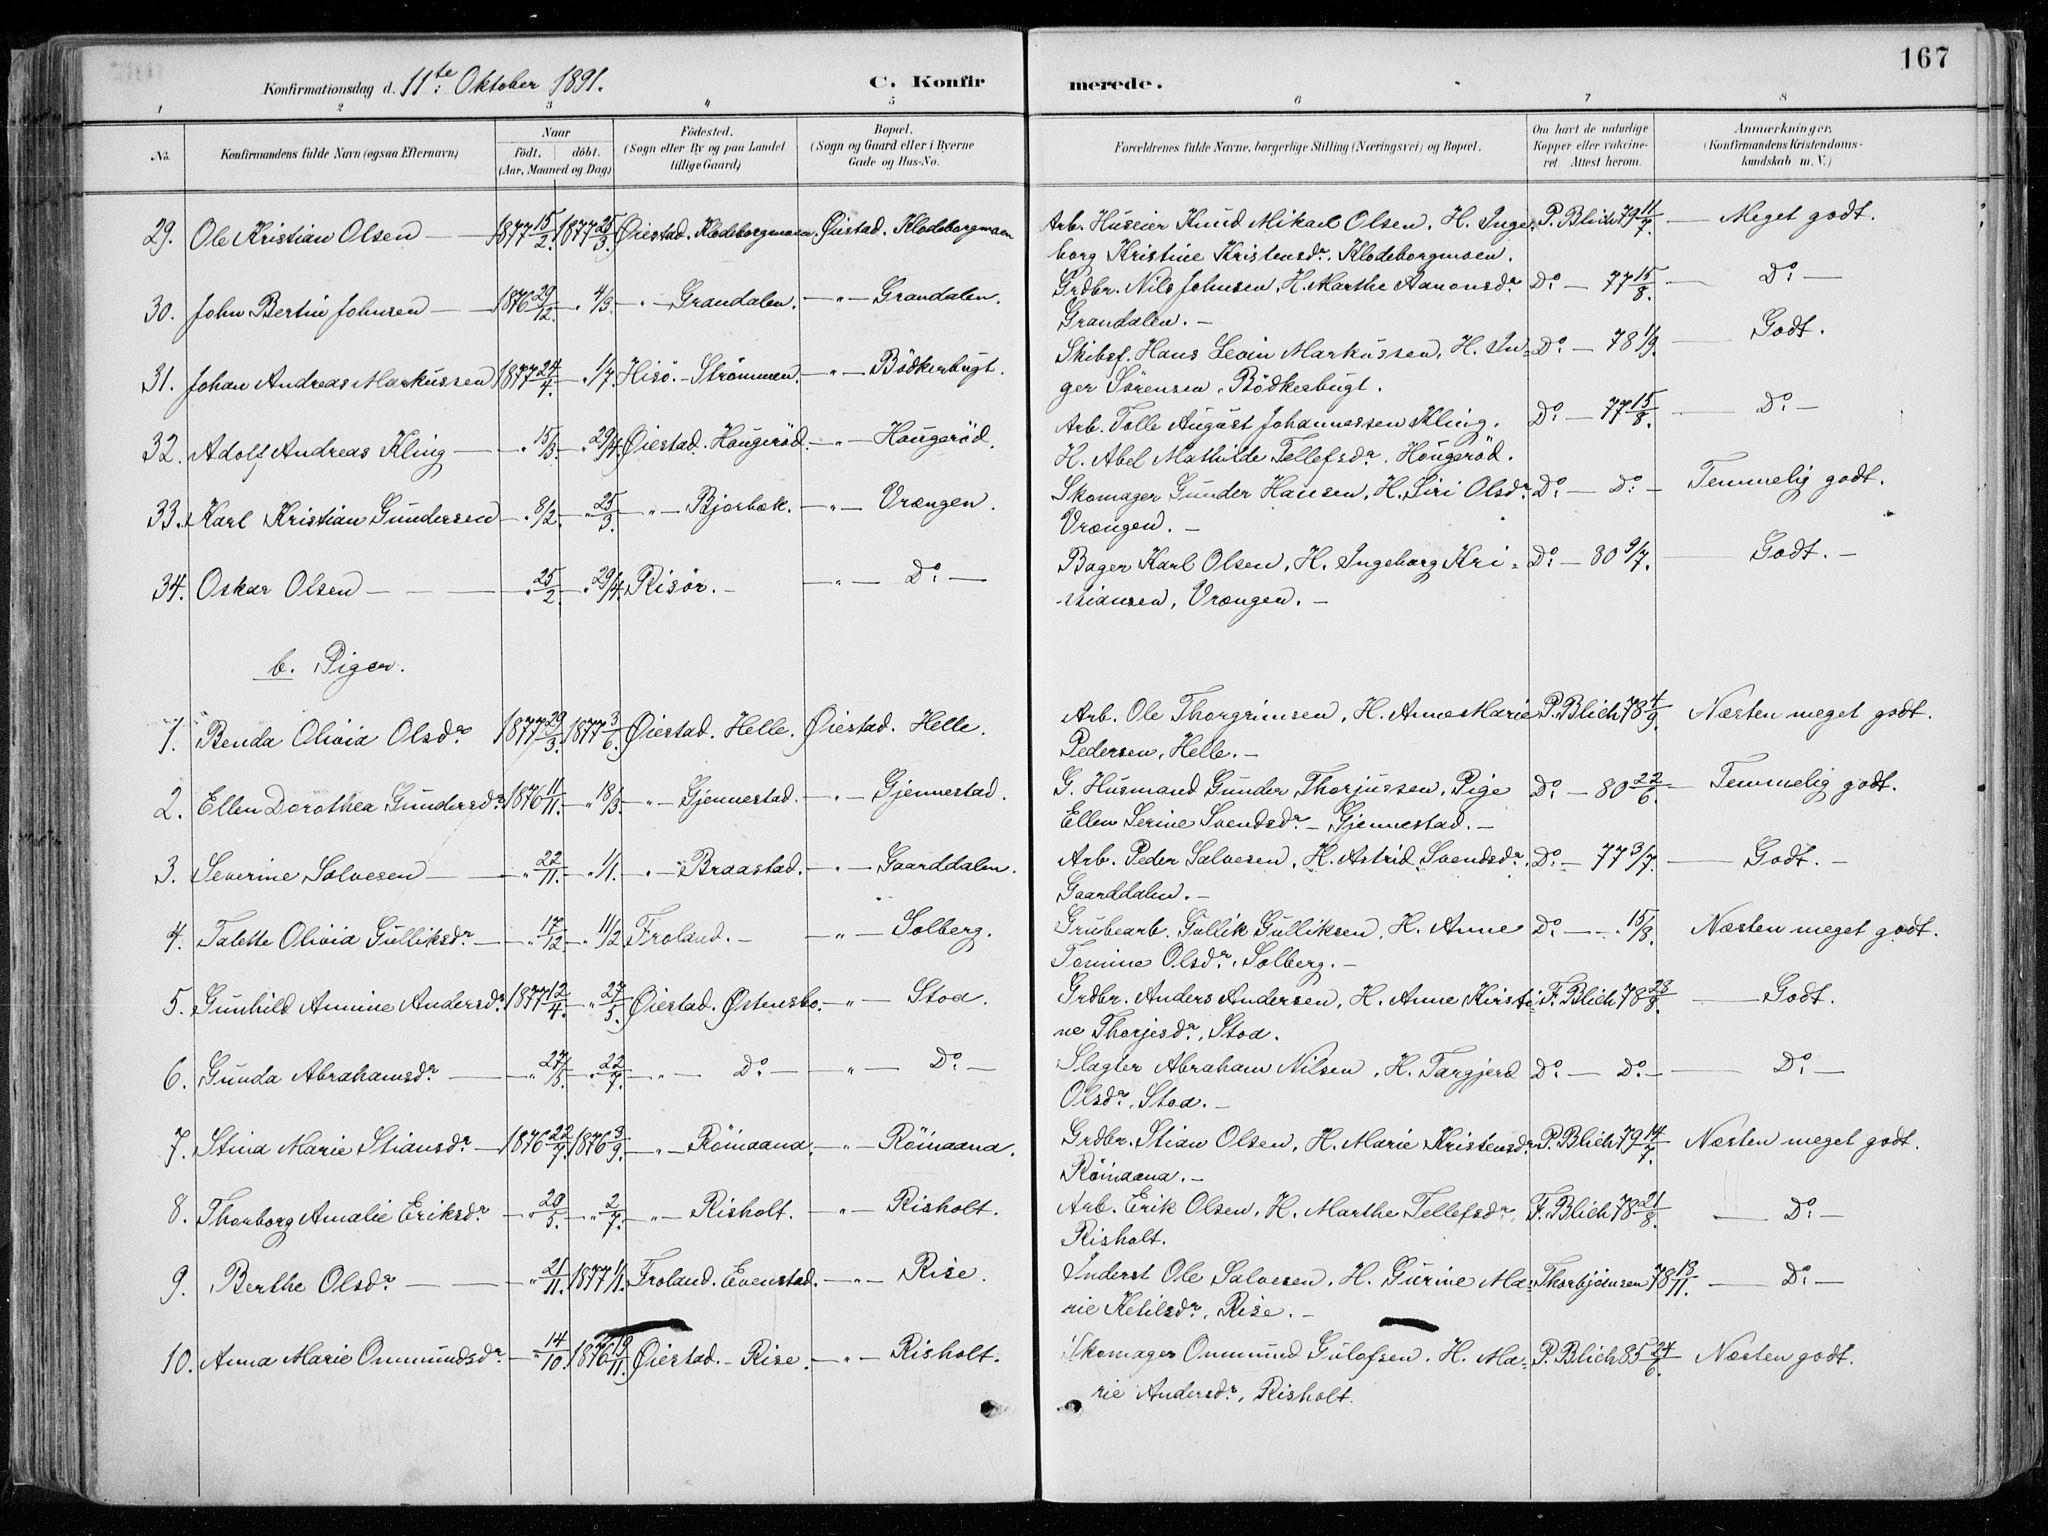 167
Konfirmationsdag d. 11te Oktober 1891. C. Konfirmerede.
1 2 3 4 5 6 7 8
No. Konfirmandens fulde Navn (ogsaa Efternavn) Naar födt. döbt. (Aar, Maaned og Dag) Födested. (Sogn eller By og paa Landet tillige Gaard) Bopæl. (Sogn og Gaard eller i Byerne Gade og Hus-No. Forældrenes fulde Navne, borgerlige Stilling (Næringsvei) og Bopæl. Om havt de naturlige Kopper eller vakcineret. Attest herom. Anmærkninger. (Konfirmandens Kristendomskundskab m. V.)
29. Ole Kristian Olsen — 1877 15/2. 1877 25/3. Øiestad. Klodeborgmoen. Øiestad. Klodeborgmoen Arb. Huseier Knud Mikael Olsen, H. Inge- P. Blich 79 11/7. — Meget godt.
borg Kristine Kristensdr. Klodeborgmoen.
30. John Bertin Johnsen — 1876 29/12. — " 4/3. — " — Grandalen. — " — Grandalen. Grdbr. Nils Johnsen, H. Marthe Aanonsdr. Do. — 77 15/8. — Do. —
Grandalen. —
31. Johan Andreas Markussen 1877 24/4. — " 1/7. Hisö. — Strömmen. — " — Bödkerbugt. Skibsf. Hans Levin Markussen, H. In- Do. — 78 1/9. — Godt.
ger Sörensen, Bödkerbugt.
32. Adolf Andreas Kling — " 15/3. — " 29/4. Øiestad. Hougeröd. — " — Hougeröd. Arb. Tolle August Johannessen Kling. Do. — 77 15/8. — Do. —
H. Abel Mathilde Tellefsdr. Hougeröd.
33. Karl Kristian Gundersen — " 8/2. — " 25/3. — " — Bjorbæk. — " — Vrængen. Skomager Gunder Hansen, H. Siri Olsdr. Do. — Do. — Temmelig godt.
Vrængen. —
34. Oskar Olsen — " 25/2. — " 29/4. Risör. — — " — Do. — Bager Karl Olsen, H. Ingeborg Kri- Do. — 80 9/7. — Godt. —
stiansen, Vrængen. —
b. Piger.
1. Benda Olivia Olsdr. 1877 29/3. 1877 3/6. Øiestad. Helle. Øiestad. Helle. Arb. Ole Thorgrimsen, H. Anne Marie P. Blich 78 4/9. Næsten meget godt.
Pedersen, Helle. —
2. Ellen Dorothea Gundersdr. 1876 11/11. — " 18/3. — " — Gjennestad. — " — Gjennestad. G. Husmand Gunder Thorjussen, Pige Do. — 80 22/6. — Temmelig godt.
Ellen Serine Svendsdr. — Gjennestad. —
3. Severine Salvesen — " 22/11. — " 1/1. — " — Braastad. — " — Gaarddalen. Arb. Peder Salvesen, H. Astrid Svendsdr. Do. — 77 3/7. — Godt. —
Gaarddalen. —
4. Talette Olivia Gulliksdr. — " 17/12. — " 11/2 Froland. — — " — Solberg. Grubearb. Gullik Gulliksen, H. Anne Do. — " 15/8. Næsten meget godt.
Tomine Olsdr. Solberg. —
5. Gunhild Amine Andersdr. 1877 12/4. — " 27/5. Øiestad. Østensbo. — " — Stoa. Grdbr. Anders Andersen, H. Anne Kirsti- F. Blich 78 28/8. — Godt.
ne Thorjesdr. Stoa.
6. Gunda Abrahamsdr. — " 27/5. — " 22/7. — " — Do. — — " — Do. — Slagter Abraham Nilsen, H. Targjerd Do. — Do. — Do. —
Olsdr. Stoa. —
7. Stina Marie Stiansdr. — 1876 22/7. 1876 3/9. — " — Röinaana. — " — Röinaana. Grdbr. Stian Olsen, H. Marie Kristensdr. P. Blich 79 14/7. Næsten meget godt.
Röinaana. —
8. Thorborg Amalie Eriksdr. — " 20/5. — " 2/7. — " — Risholt. — " — Risholt. Arb. Erik Olsen, H. Marthe Tellefsdr. F. Blich 78 21/8. — Do. —
Risholt.
9. Berthe Olsdr. — " 21/11. 1877 1/1. Froland. Evenstad. — " — Rise. Inderst Ole Salvesen, H. Gurine Ma- Thorbjörnsen 78 13/11. — Do. —
rie Ketilsdr. Rise. —
10. Anna Marie Ommundsdr. — " 14/10. 1876 19/11. Øiestad. — Rise. — " — Risholt. Skomager Ommund Gulofsen, H. Ma- P. Blich 85 24/6. Næsten godt.
rie Andersdr., Risholt.